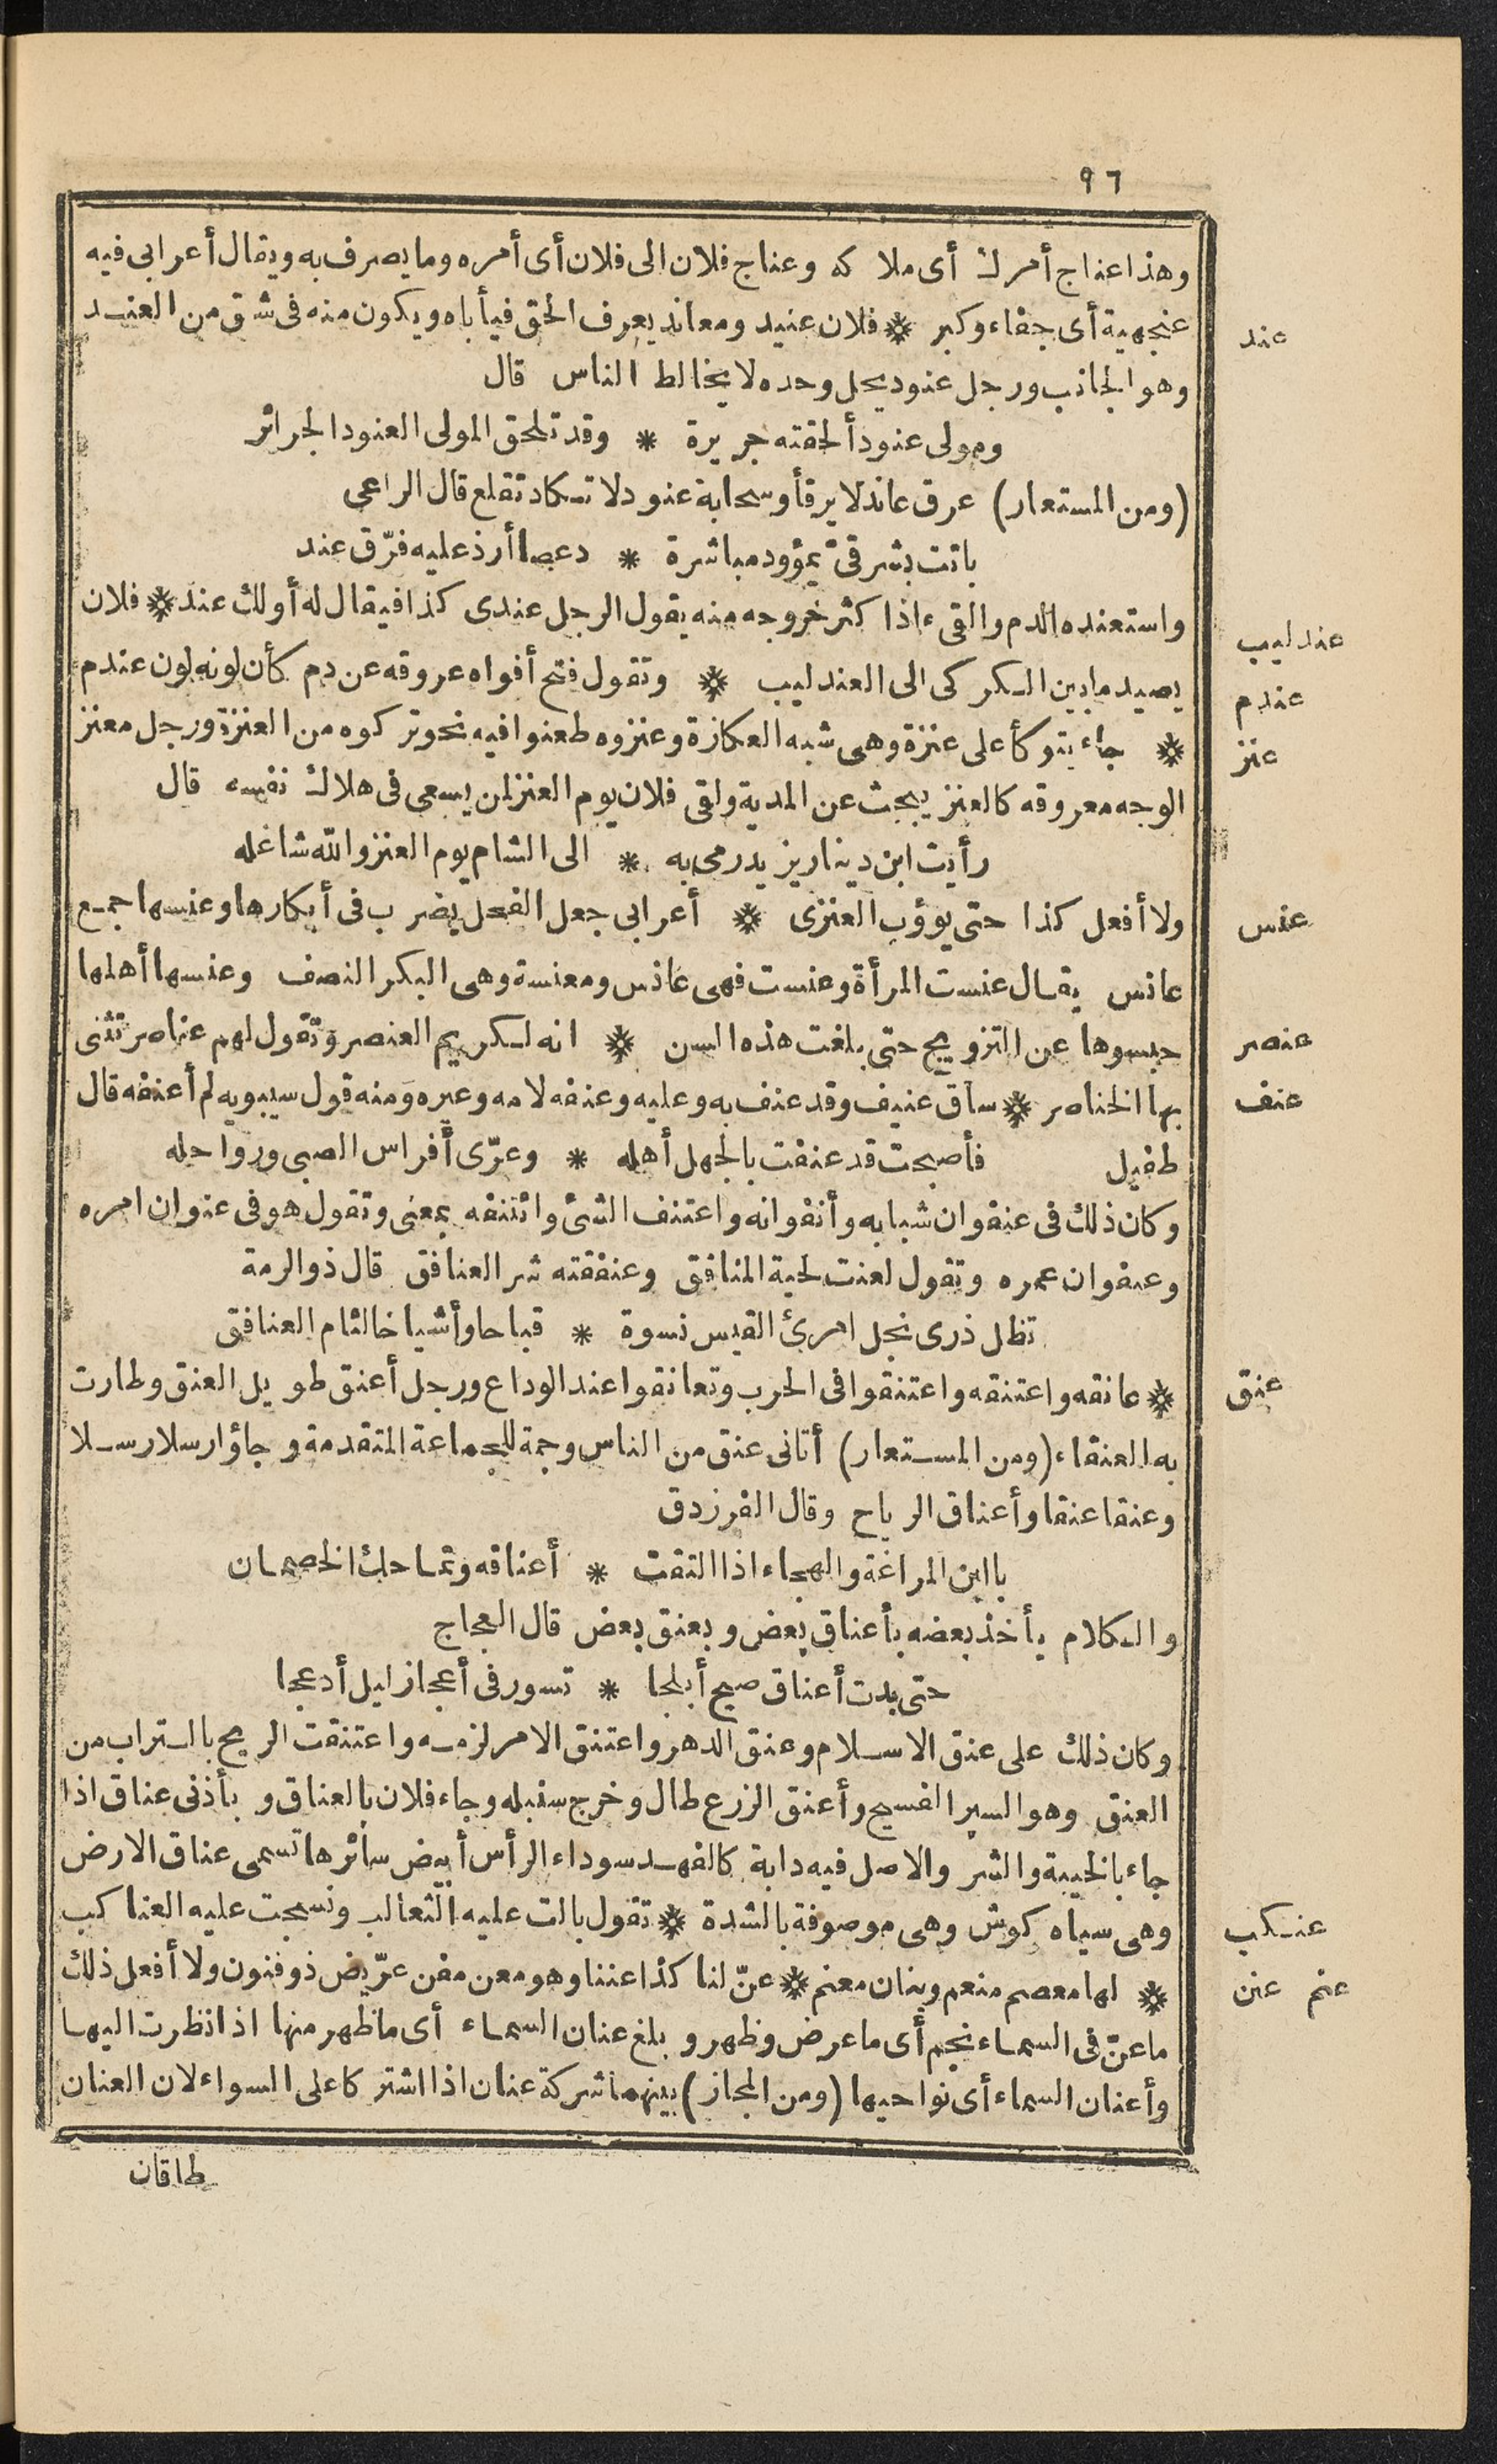 ٩٦
وهذا عناج أمرك أى ملاكه وعناج فلان الى فلان أى أمره وما يصرف به ويقال أعرابى فيه
عنجهية أى جفاء وكبر * فلان عنيد ومعاند يعرف الحق فيأباه ويكون منه فى شق من العند
عند
وهو الجانب ورجل عنود يحل وحده لا يخالط الناس قال
ومولى عنود ألحقته جريرة * وقد تلحق المولى العنود الجرائر
(ومن المستعار) عرق عاند لا يرقأ وسحابة عنود لا تكاد تقلع قال الراعى
باتت بشرقىّ يمؤود مباشرة * دعصا أرذ عليه فرّق عند
واستعنده الدم والقىء اذا كثر خروجه منه يقول الرجل عندى كذا فيقال له أولك عند * فلان
عندليب
يصيد ما بين الكركى الى العندليب * وتقول فتح أفواه عروقه عن دم كأن لونه لون عندم
عندم
* جاء يتوكأ على عنزة وهى شبه العكازة وعنزوه طعنوا فيه نحو تركوه من العنزة ورجل معنز
عنز
الوجه معروقه كالعنز يبحث عن المدية ولقى فلان يوم العنز لمن يسعى فى هلاك نفسه قال
رأيت ابن دينار يزيد رمى به * الى الشام يوم العنز والله شاغله
ولا أفعل كذا حتى يوؤب العنزى * أعرابى جعل الفحل يضرب فى أبكارها وعنسها جمع
عنس
عانس يقال عنست المرأة وعنست فهى عانس ومعنسة وهى البكر النصف وعنسها أهلها
حبسوها عن التزويج حتى بلغت هذه السن * انه لكريم العنصر وتقول لهم عناصر تثنى
عنصر
بها الخناصر * ساق عنيف وقد عنف به وعليه وعنفه لامه وعيره ومنه قول سيبويه لم أعنفه قال
عنف
طفيل فأصبحت قد عنفت بالجهل أهله * وعرّى أفراس الصبى ورواحله
وكان ذلك فى عنفوان شبابه وأنفوانه واعتنف الشئ وائتنفه بمعنى وتقول هو فى عنوان امره
وعنفوان عمره وتقول لعنت لحية المنافق وعنفقته شر العنافق قال ذو الرمة
تظل ذرى نخل امرئ القيس نسوة * قباحا وأشياخا لئام العنافق
* عانقه واعتنقه واعتنقوا فى الحرب وتعانقوا عند الوداع ورجل أعنق طويل العنق وطارت
عنق
به العنقاء (ومن المستعار) أتانى عنق من الناس وجمة للجماعة المتقدمة وجاؤا رسلا رسلا
وعنقا عنقا وأعناق الرياح وقال الفرزدق
يا ابن المراغة والهجاء اذا التقت * أعناقه وتماحك الخصمان
والكلام يأخذ بعضه بأعناق بعض وبعنق بعض قال العجاج
حتى بدت أعناق صبح أبلجا * تسور فى أعجاز ليل أدعجا
وكان ذلك على عنق الاسلام وعنق الدهر واعتنق الامر لزمه واعتنقت الريح بالتراب من
العنق وهو السير الفسيح وأعنق الزرع طال وخرج سنبله وجاء فلان بالعناق وبأذنى عناق اذا
جاء بالخيبة والشر والاصل فيه دابة كالفهد سوداء الرأس أبيض سائرها تسمى عناق الارض
وهى سياه كوش وهى موصوفة بالشدة * تقول بالت عليه الثعالب ونسجت عليه العناكب
عنكب
* لها معصم منعم وبنان معنم * عنّ لنا كذا عننا وهو معن مفن عرّيض ذو فنون ولا أفعل ذلك
عنم عنن
ما عنّ فى السماء نجم أى ما عرض وظهر وبلغ عنان السماء أى ما ظهر منها اذا نظرت اليها
وأعنان السماء أى نواحيها (ومن المجاز) بينهما شركة عنان اذا اشتركا على السواء لان العنان
طاقان